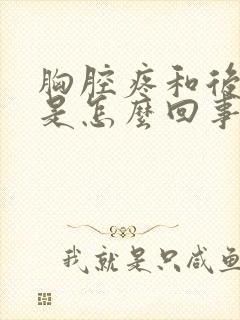 胸腔疼和後
是怎麼回事
我就是只咸鱼